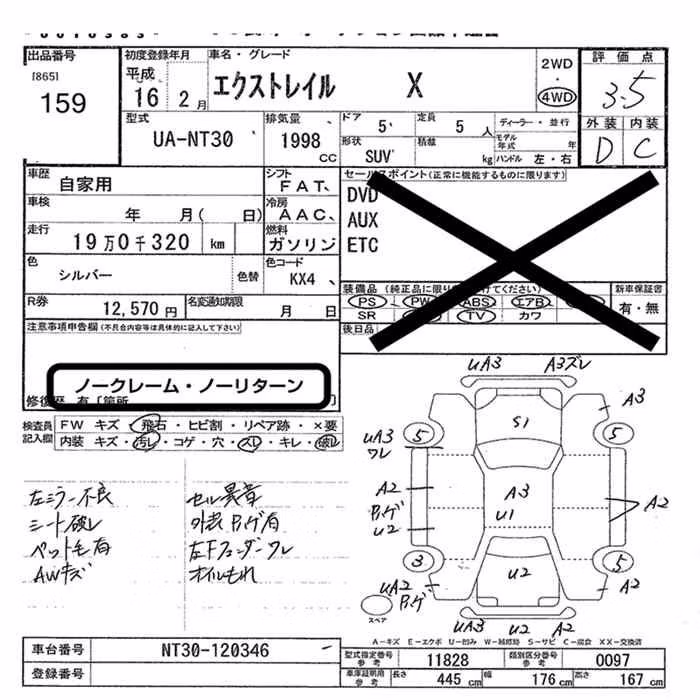 出品番号
[865]
159
初度登録年月
平成
16 2 月
車名・グレード
エクストレイル X
2WD
・
4WD
評価点
3.5
外装 内装
D C
型式
UA-NT30
排気量
1998
CC
ドア
5
定員
5 人
ディーラー・並行
形状
SUV
積載
kg
モデル年式
年
ハンドル 左・右
車歴
自家用
シフト
FAT
車検
年 月( 日)
冷房
AAC
走行
19万0千320 km
燃料
ガソリン
色
シルバー
色替
色コード
KX4
R券
12,570円
名変通知期限
月 日
セールスポイント(正常に機能するものに限ります)
DVD
AUX
ETC
装備品
PS PW ABS エアB
SR TV カワ
新車保証書
有・無
後日品
注意事項申告欄(不具合内容等は具体的に記入して下さい)
ノークレーム・ノーリターン
検査員
記入欄
FW キズ・飛石・ヒビ割・リペア跡・×要
内装 キズ・汚れ・コゲ・穴・スレ・キレ・破レ
左ミラー不良
シート破レ
ペット毛有
AWキズ
セル異音
外装Bゲ有
左Fフェンダーワレ
オイルもれ
UA3 A3ズレ
A3
S1
5 5
UA3
ワレ
A2
Bゲ
U2
A3
U1
A2
3 5
UA2
Bゲ
U2
A2
スペア
UA3 U2 A2
A-キズ E-エクボ U-凹み W-補修跡 S-サビ C-腐食 XX-交換済
車台番号
NT30-120346
登録番号
型式指定番号
参考
11828
類別区分番号
参考
0097
車庫証明用
参考
長さ
445 cm
幅
176 cm
高さ
167 cm